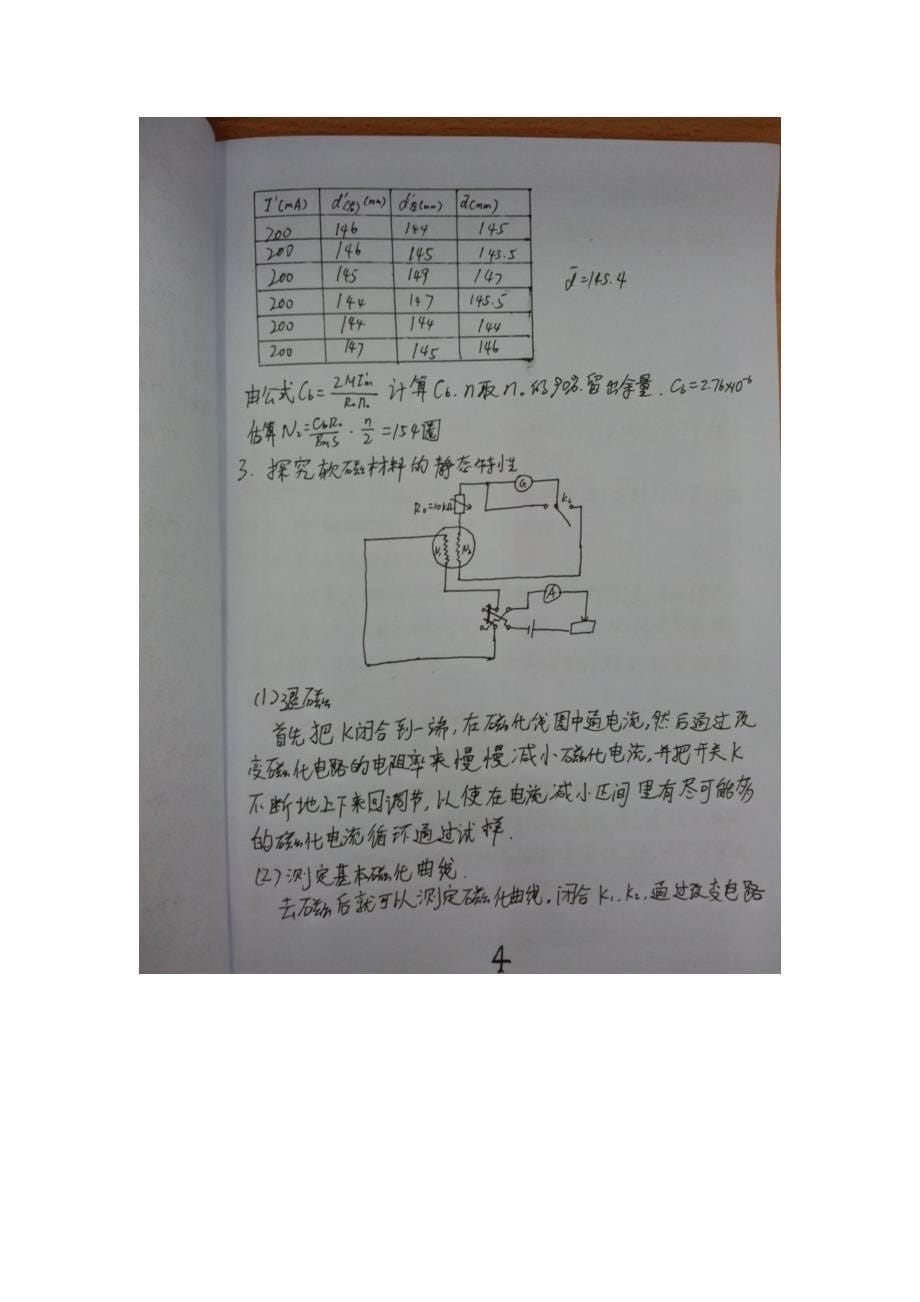 I'(mA) d'(右)(mm) d'左(mm) d̄(mm)
200 146 144 145
200 146 145 143.5
200 145 149 147
200 144 147 145.5
200 144 144 144
200 147 145 146
d̄=145.4
由公式Cb=2MI'm/R0n0 计算Cb.n取n0的90%.留出余量.Cb=2.76×10⁻⁶
估算N2=CbR0/BmS·n/2=154圈
3.探究软磁材料的静态特性
G
K2
R0=10kΩ
N1 N2
A
(1)退磁
首先把K闭合到一端,在磁化线圈中通电流,然后通过改
变磁化电路的电阻率来慢慢减小磁化电流,并把开关K
不断地上下来回调节,以使在电流减小区间里有尽可能多
的磁化电流循环通过试样.
(2)测定基本磁化曲线.
去磁后就可以测定磁化曲线.闭合K1.K2.通过改变电路
4